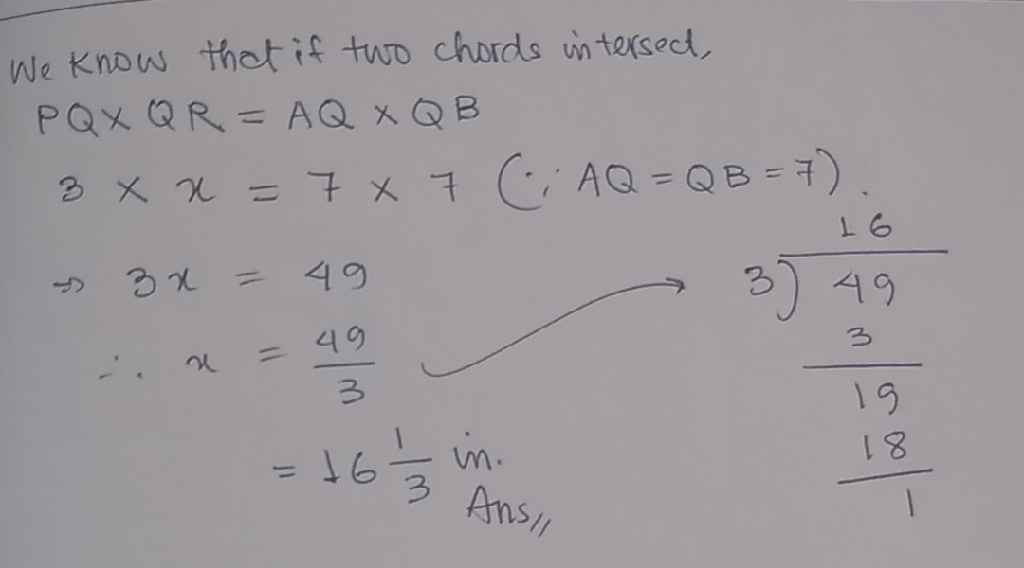 We know that if two chords intersed,
PQ × QR = AQ × QB
3 × x = 7 × 7 (∵ AQ = QB = 7).
⇒ 3x = 49
∴ x = 49/3
= 16 1/3 in.
Ans //
16
3) 49
3
19
18
1